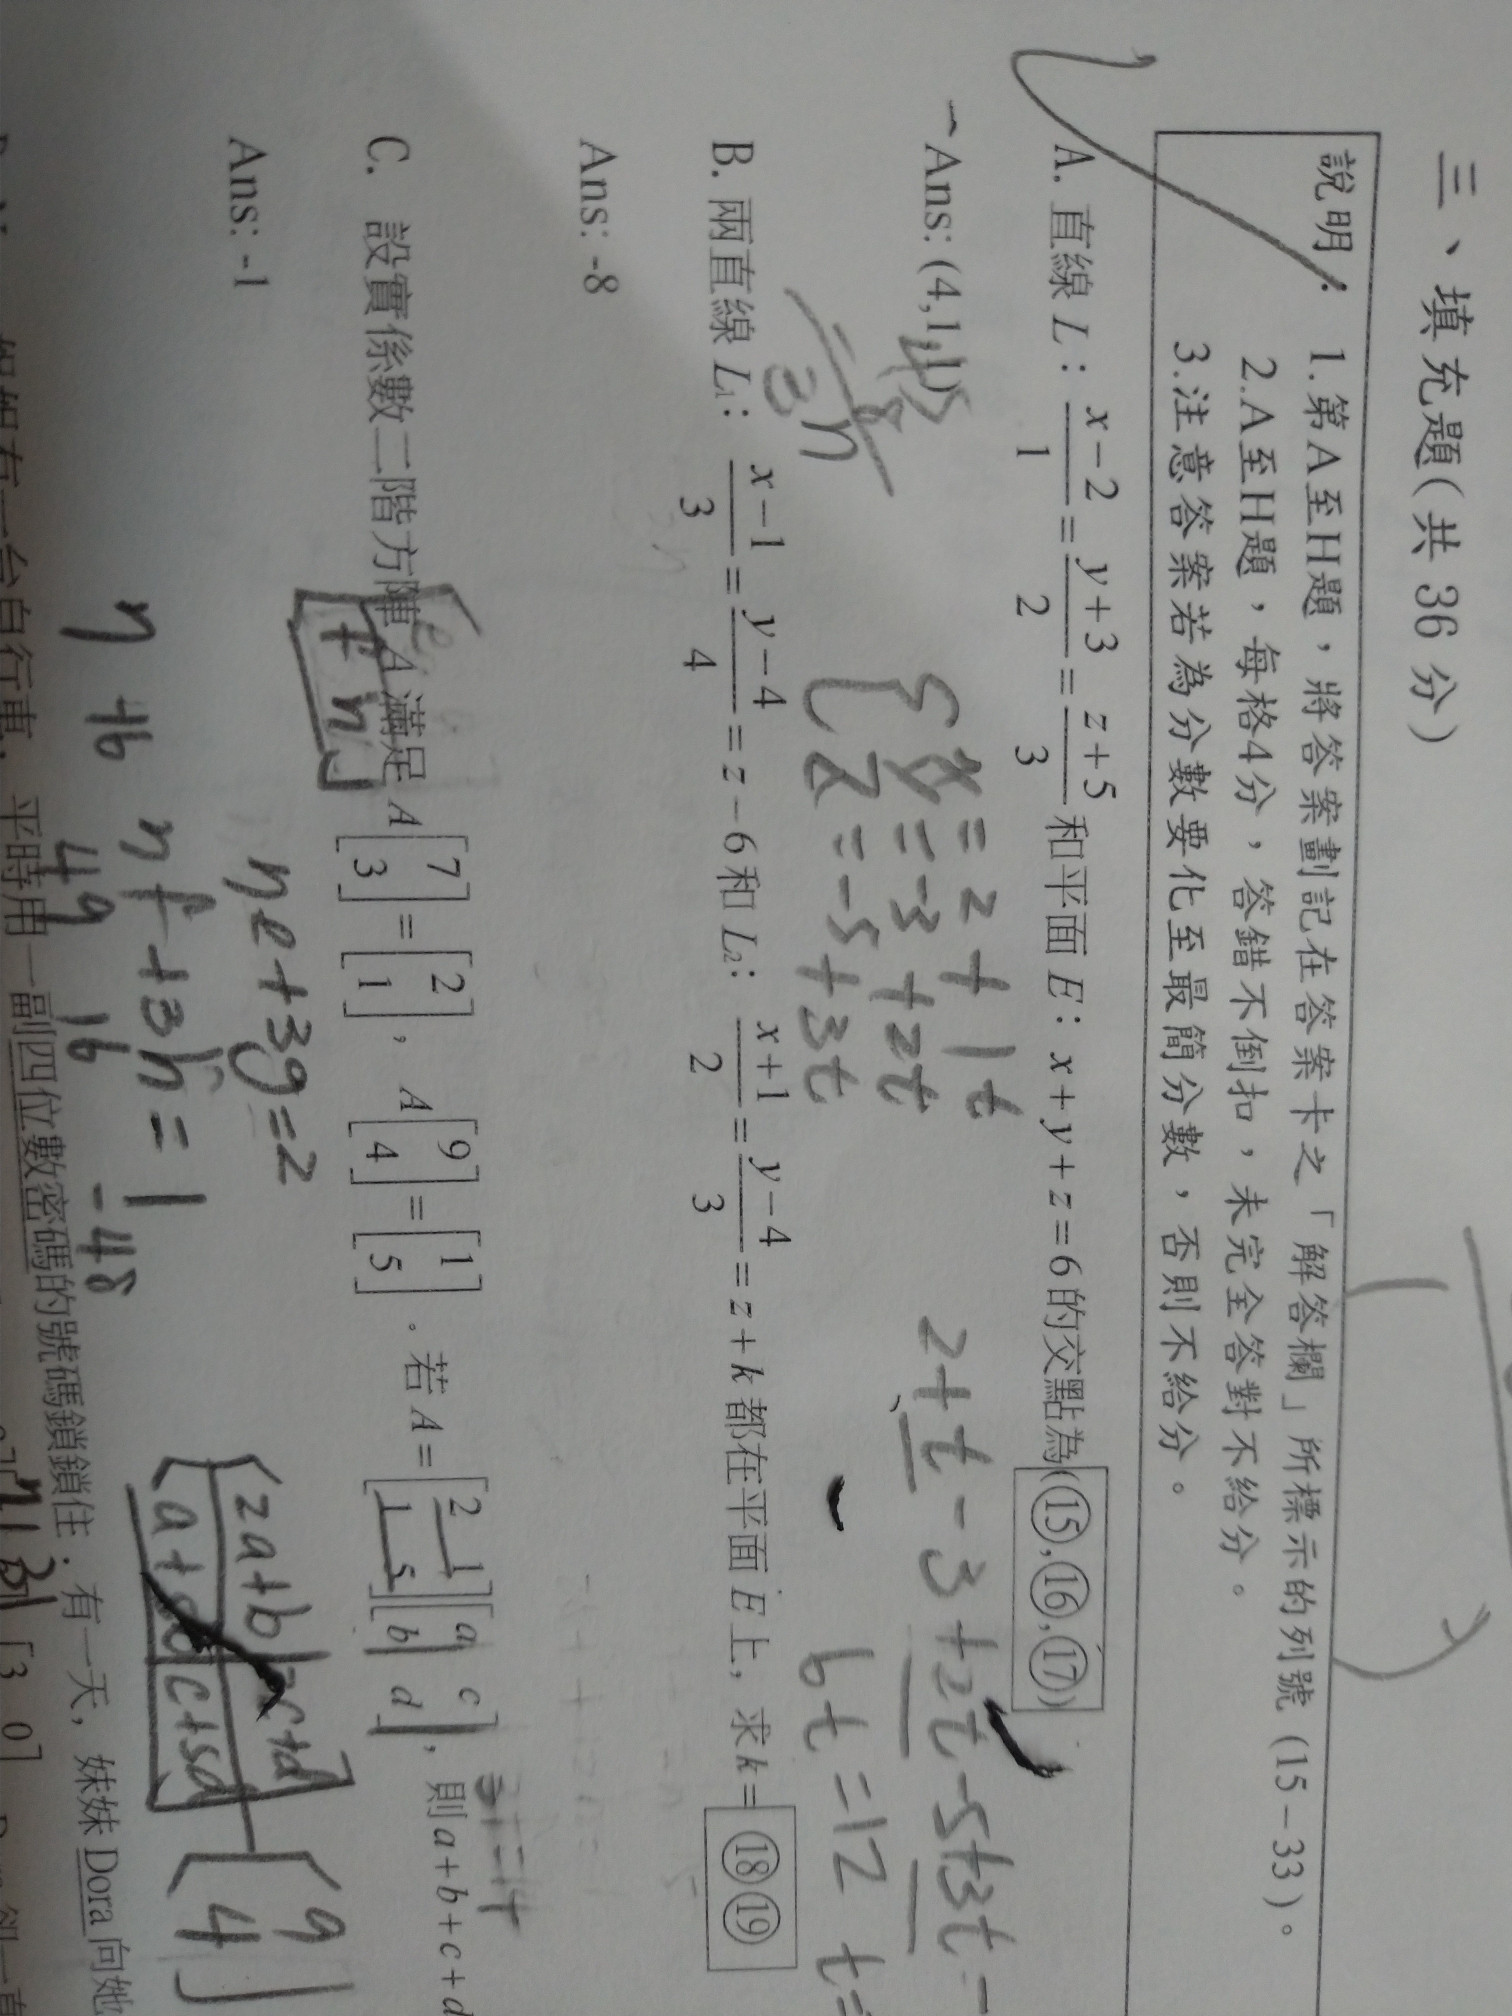 三、填充題(共 36 分)
說明：1.第A至H題，將答案劃記在答案卡之「解答欄」所標示的列號 (15-33)。
2.A至H題，每格4分，答錯不倒扣，未完全答對不給分。
3.注意答案若為分數要化至最簡分數，否則不給分。
A. 直線 L： (x-2)/1 = (y+3)/2 = (z+5)/3 和平面 E： x+y+z=6 的交點為(⑮,⑯,⑰)
Ans: (4,1,1)
x = 2 + 1t
y = -3 + 2t
z = -5 + 3t
2+t-3+2t-5+3t=
6t=12 t=
B. 兩直線 L₁： (x-1)/3 = (y-4)/4 = z-6 和 L₂： (x+1)/2 = (y-4)/3 = z+k 都在平面 E 上，求 k= ⑱⑲
Ans: -8
C. 設實係數二階方陣 A 滿足 A[7 3] = [2 1]，A[9 4] = [1 5]．若 A = [2 1 1 5][a c b d]，則 a+b+c+d
Ans: -1
7e+3g=2
7f+3h=1
49 16 -48
2a+b
[9 4]
一台自行車，平時用一副四位數密碼的號碼鎖鎖住．有一天，妹妹 Dora 向她
[3 0]